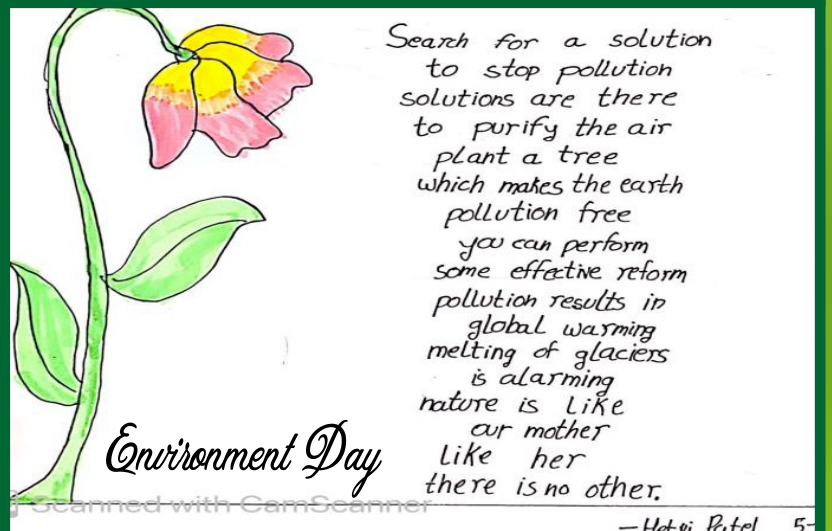 Search for a solution
to stop pollution
solutions are there
to purify the air
plant a tree
which makes the earth
pollution free
you can perform
some effective reform
pollution results in
global warming
melting of glaciers
is alarming
nature is like
our mother
like her
there is no other.
Environment Day
Scanned with CamScanner
Patel 5-